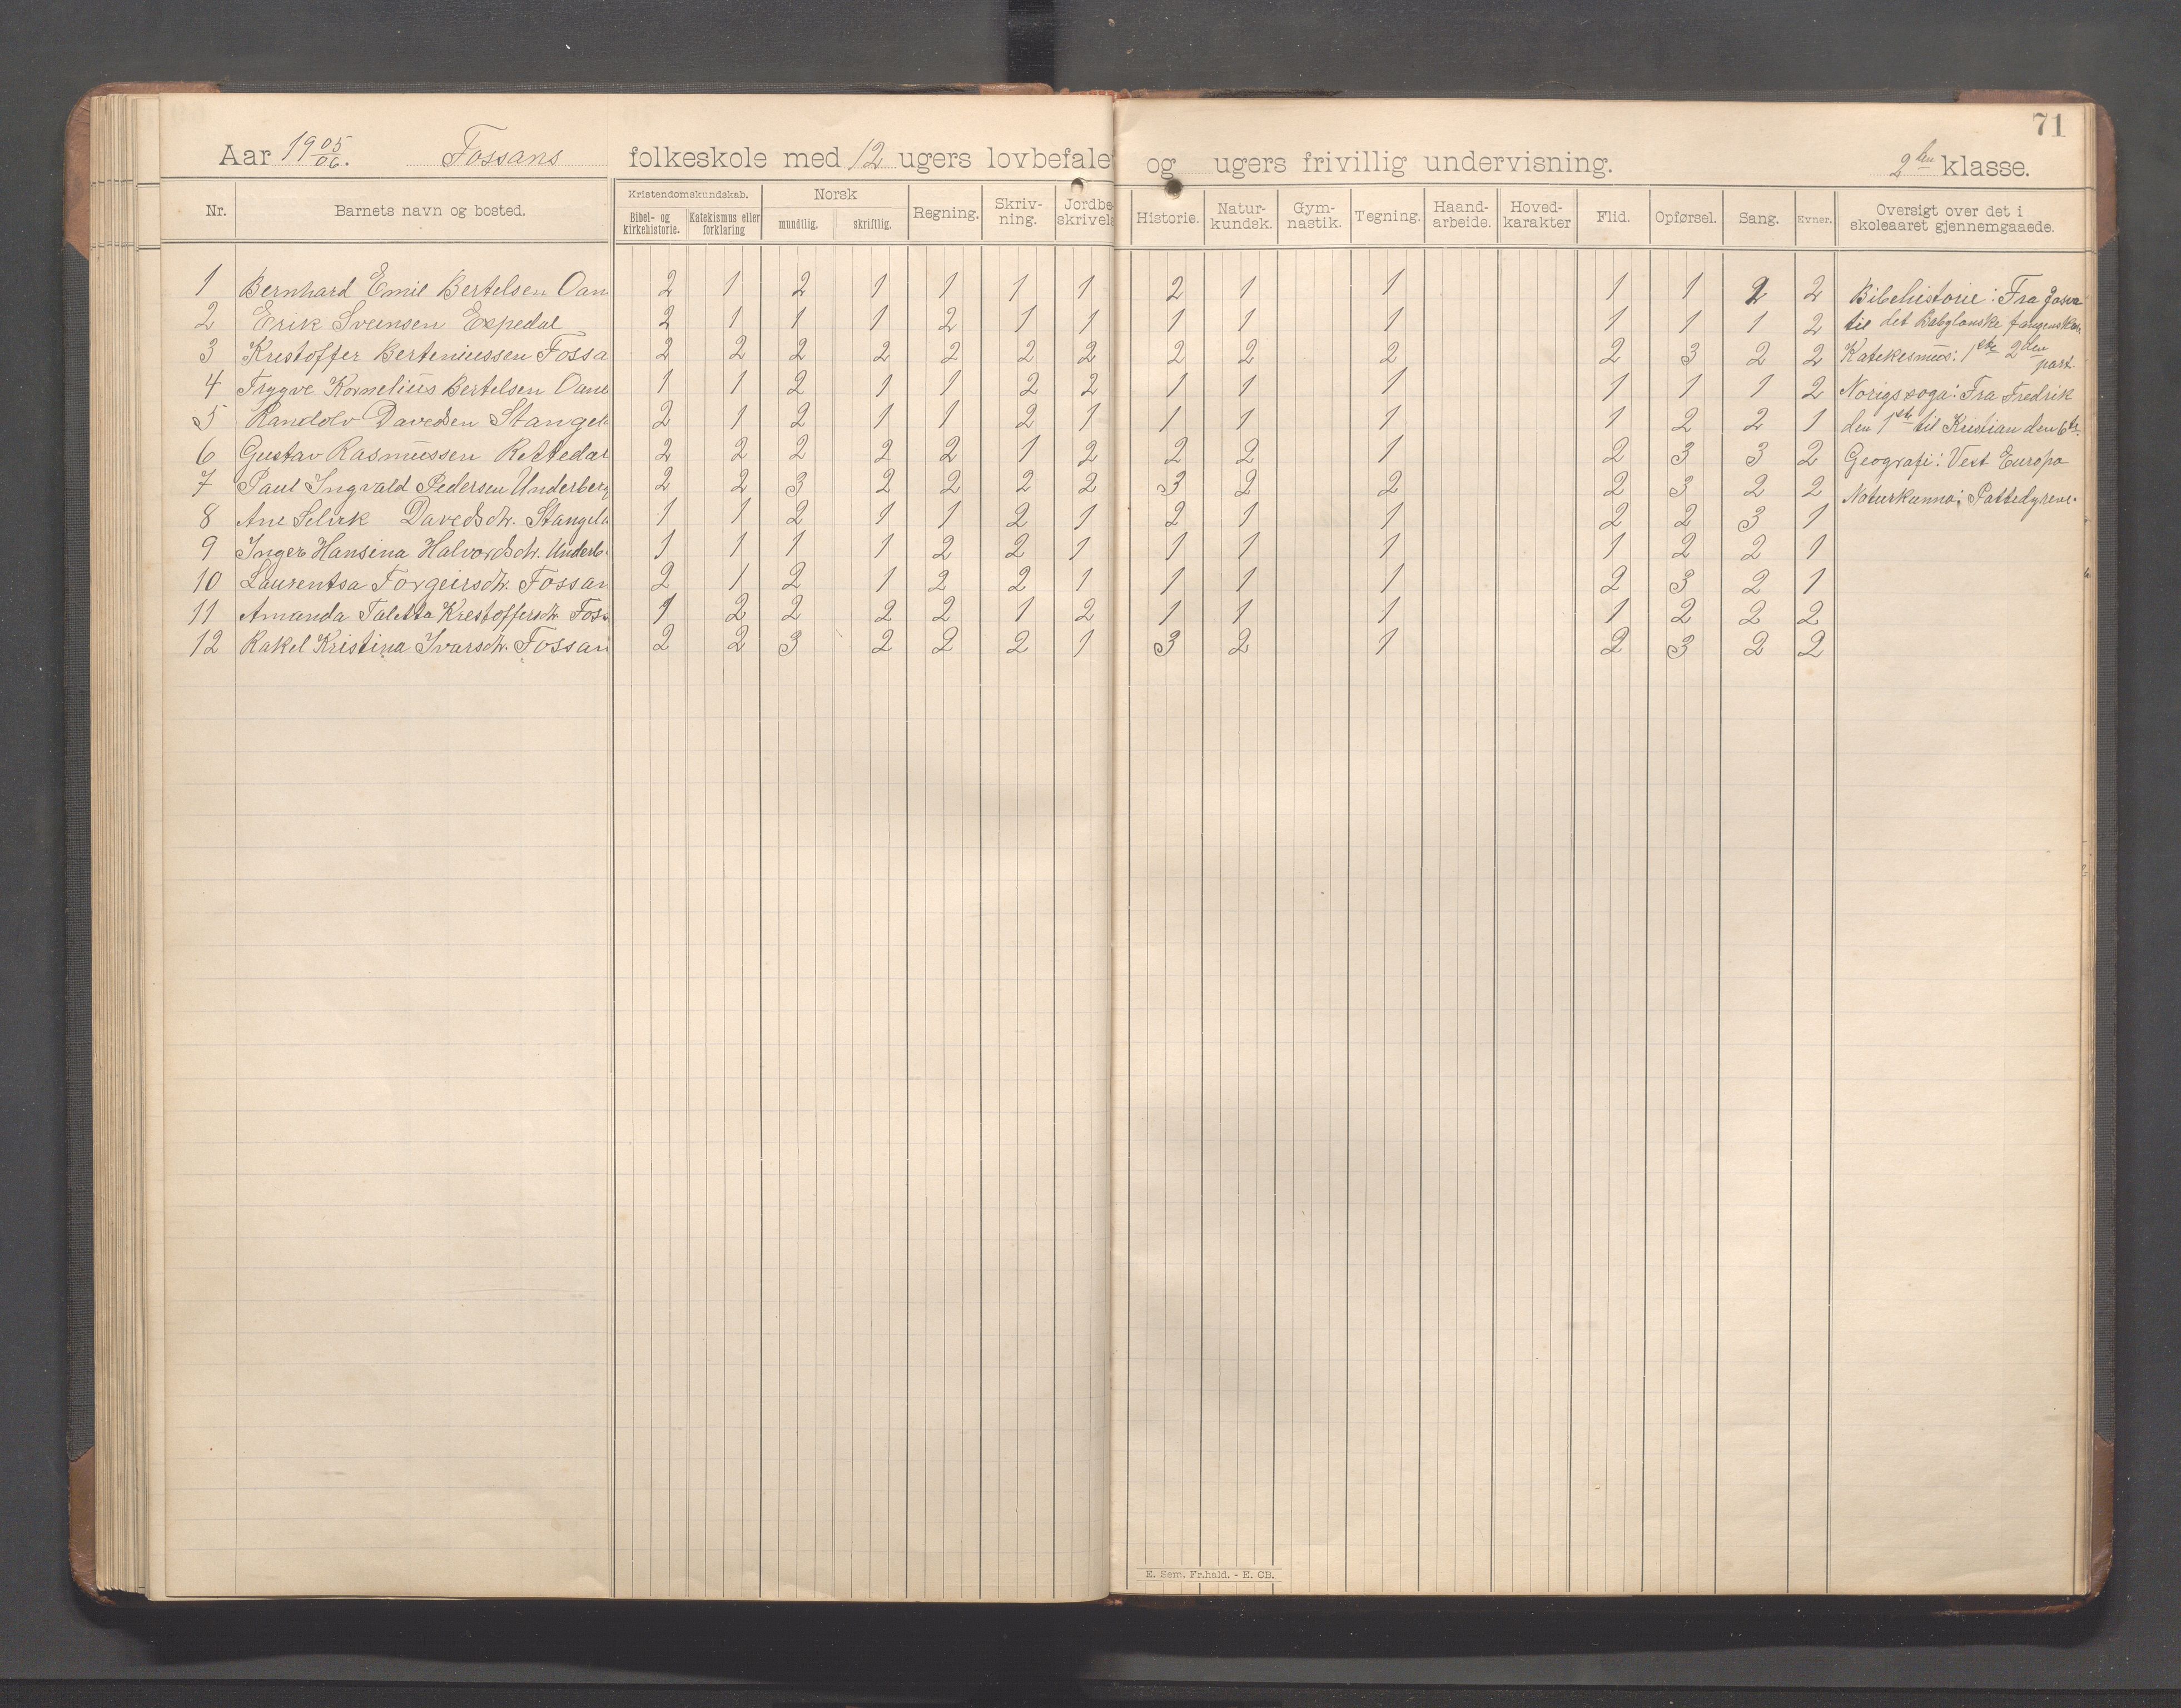 71
Aar 19 05/06. Fossans folkeskole med 12 ugers lovbefale og ugers frivillig undervisning. 2den klasse.
Nr. Barnets navn og bosted. Kristendomskundskab. Bibel- og kirkehistorie. Katekismus eller forklaring Norsk mundtlig. skriftlig. Regning. Skriv-ning. Jordbe skrivels Historie. Natur-kundsk. Gym-nastik. Tegning. Haand-arbeide. Hoved-karakter Flid. Opførsel. Sang. Evner. Oversigt over det i skoleaaret gjennemgaaede.
1 Bernhard Emil Bertelsen Oan 2 1 2 1 1 1 1 2 1 1 1 1 2 2 Bibelhistorie: Fra Josva
2 Erik Sveinsen Espedal 2 1 1 1 2 1 1 1 1 1 1 1 1 2 til det Babylonske fangenskab.
3 Krestoffer Berteniussen Fossa 2 2 2 2 2 2 2 2 2 2 2 3 2 2 Katekesmus: 1ste 2den part.
4 Trygve Kornelius Bertelsen Oane 1 1 2 1 1 2 2 1 1 1 1 1 1 2 Norigssoga: Fra Fredrik
5 Randolv Davedsen Stangel 2 1 2 1 1 2 1 1 1 1 1 2 2 1 den 1ste til Kristian den 6te.
6 Gustav Rasmussen Rettedal 2 2 2 2 2 1 2 2 2 1 2 3 3 2 Geografi: Vest Europa
7 Paul Ingvald Pedersen Underberg 2 2 3 2 2 2 2 3 2 2 2 3 2 2 Naturkunna: Pattedyrene.
8 Ane Davedsdtr. Stangela 1 1 2 1 1 2 1 2 1 1 2 2 3 1
9 Inger Hansina Halvordsdtr. Underb. 1 1 1 1 2 2 1 1 1 1 1 2 2 1
10 Laurentsa Torgeirsdtr. Fossan 2 1 2 1 2 2 1 1 1 1 2 3 2 1
11 Amanda Taletta Krestoffersdtr. Foss 1 2 2 2 2 1 2 1 1 1 1 2 2 2
12 Rakel Kristina Ivarsdtr. Fossan 2 2 3 2 2 2 1 3 2 1 2 3 2 2
E. Sem. Fr.hald. - E. CB.